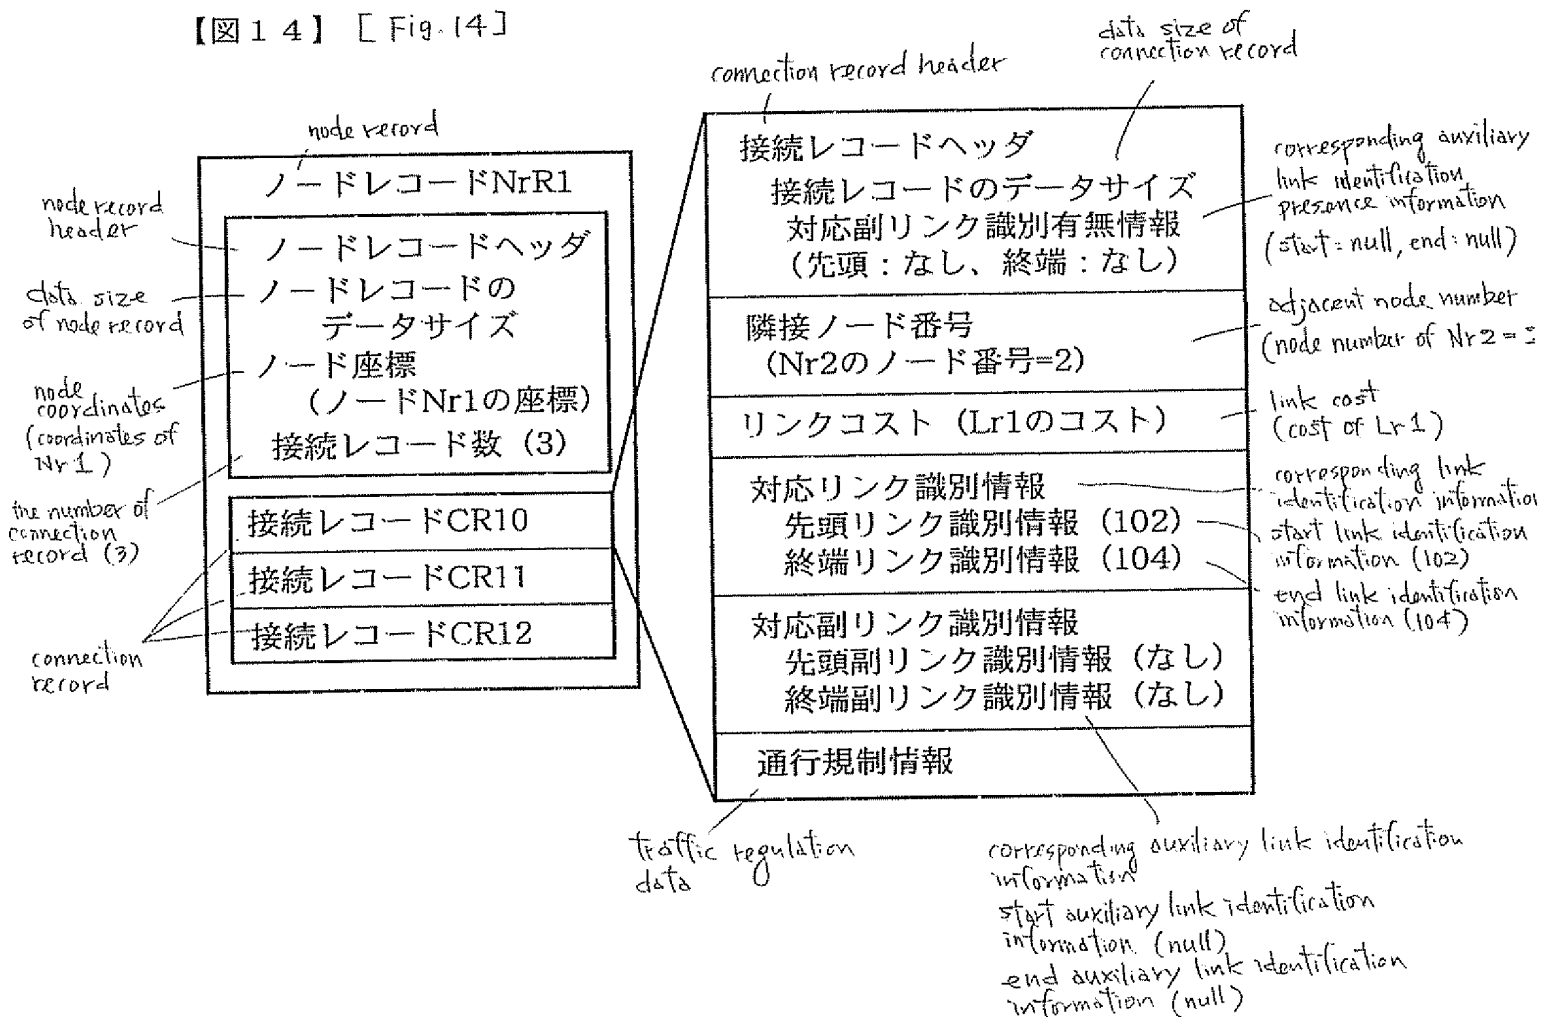 【図１４】 [Fig.14]
node record
ノードレコードNrR1
node record
header
ノードレコードヘッダ
data size
of node record
ノードレコードの
データサイズ
node
coordinates
(coordinates of
Nr1)
ノード座標
（ノードNr1の座標）
the number of
connection
record (3)
接続レコード数（3）
接続レコードCR10
接続レコードCR11
接続レコードCR12
connection
record
connection record header
data size of
connection record
接続レコードヘッダ
接続レコードのデータサイズ
対応副リンク識別有無情報
（先頭：なし、終端：なし）
corresponding auxiliary
link identification
presence information
(start: null, end: null)
隣接ノード番号
（Nr2のノード番号=2）
adjacent node number
(node number of Nr2 =
リンクコスト（Lr1のコスト）
link cost
(cost of Lr1)
対応リンク識別情報
先頭リンク識別情報（102）
終端リンク識別情報（104）
corresponding link
identification information
start link identification
information (102)
end link identification
information (104)
対応副リンク識別情報
先頭副リンク識別情報（なし）
終端副リンク識別情報（なし）
通行規制情報
traffic regulation
data
corresponding auxiliary link identification
information
start auxiliary link identification
information (null)
end auxiliary link identification
information (null)